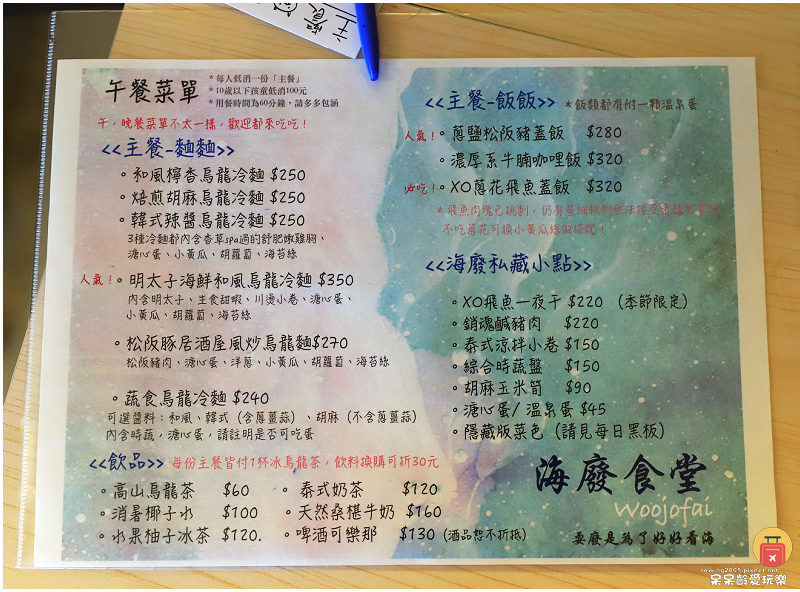 午餐菜單
*每人低消一份「主餐」
*10歲以下孩童低消100元
*用餐時間為60分鐘,請多多包涵
午,晚餐菜單不太一樣,歡迎都來吃吃!
<<主餐-麵麵>>
。和風檸香烏龍冷麵 $250
。焙煎胡麻烏龍冷麵 $250
。韓式辣醬烏龍冷麵 $250
3種冷麵都內含香草spa過的舒肥嫩雞胸、
溏心蛋、小黃瓜、胡蘿蔔、海苔絲
人氣!。明太子海鮮和風烏龍冷麵 $350
內含明太子、生食甜蝦、川燙小卷、溏心蛋、
小黃瓜、胡蘿蔔、海苔絲
。松阪豚居酒屋風炒烏龍麵$270
松阪豬肉、溏心蛋、洋蔥、小黃瓜、胡蘿蔔、海苔絲
。蔬食烏龍冷麵 $240
可選醬料:和風、韓式(含蔥薑蒜)、胡麻(不含蔥薑蒜)
內含時蔬,溏心蛋,請註明是否可吃蛋
<<飲品>> 每份主餐皆付1杯冰烏龍茶,飲料換購可折30元
。高山烏龍茶 $60
。消暑椰子水 $100
。水果柚子冰茶 $120.
。泰式奶茶 $120
。天然桑椹牛奶 $160
。啤酒可樂那 $130 (酒品恕不折抵)
<<主餐-飯飯>> *飯類都有付一顆溫泉蛋
人氣!。蔥鹽松阪豬蓋飯 $280
。濃厚系牛腩咖哩飯 $320
必吃!。XO蔥花飛魚蓋飯 $320
*飛魚肉塊已挑刺,仍有些細軟刺
不吃蔥花可換小黃瓜絲做搭配!
<<海廢私藏小點>>
。XO飛魚一夜干 $220 (季節限定)
。銷魂鹹豬肉 $220
。泰式涼拌小卷 $150
。綜合時蔬盤 $150
。胡麻玉米筍 $90
。溏心蛋/溫泉蛋 $45
。隱藏版菜色 (請見每日黑板)
海廢食堂
Woojofai
耍廢是為了好好看海
rowing2005.pixnet.net
呆呆齡愛玩樂